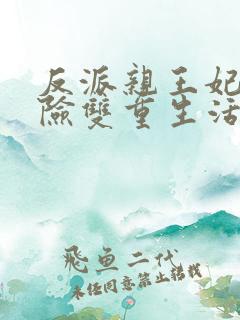 反派親王妃
險雙重生活
飛魚二代
未經同意禁止轉載